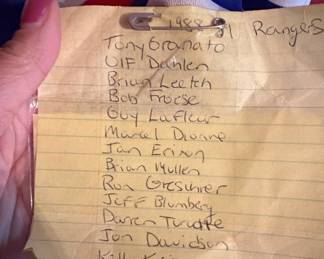 1988 Rangers
Tony Granato
Ulf Dahlen
Brian Leetch
Bob Froese
Guy Lafleur
Marcel Dionne
Jan Erixon
Brian Mullen
Ron Greschner
Jeff Blumberg
Darren Turcotte
Jon Davidson